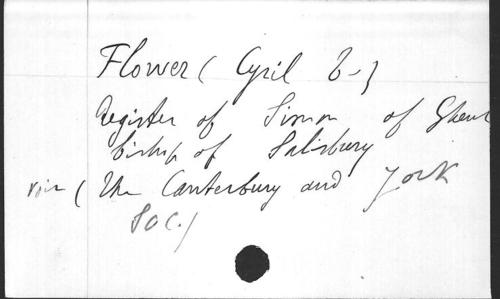 Flower ( Cyril T-)
Register of Simon of Ghent
bishop of Salisbury
voir ( The Canterbury and York
Soc.)